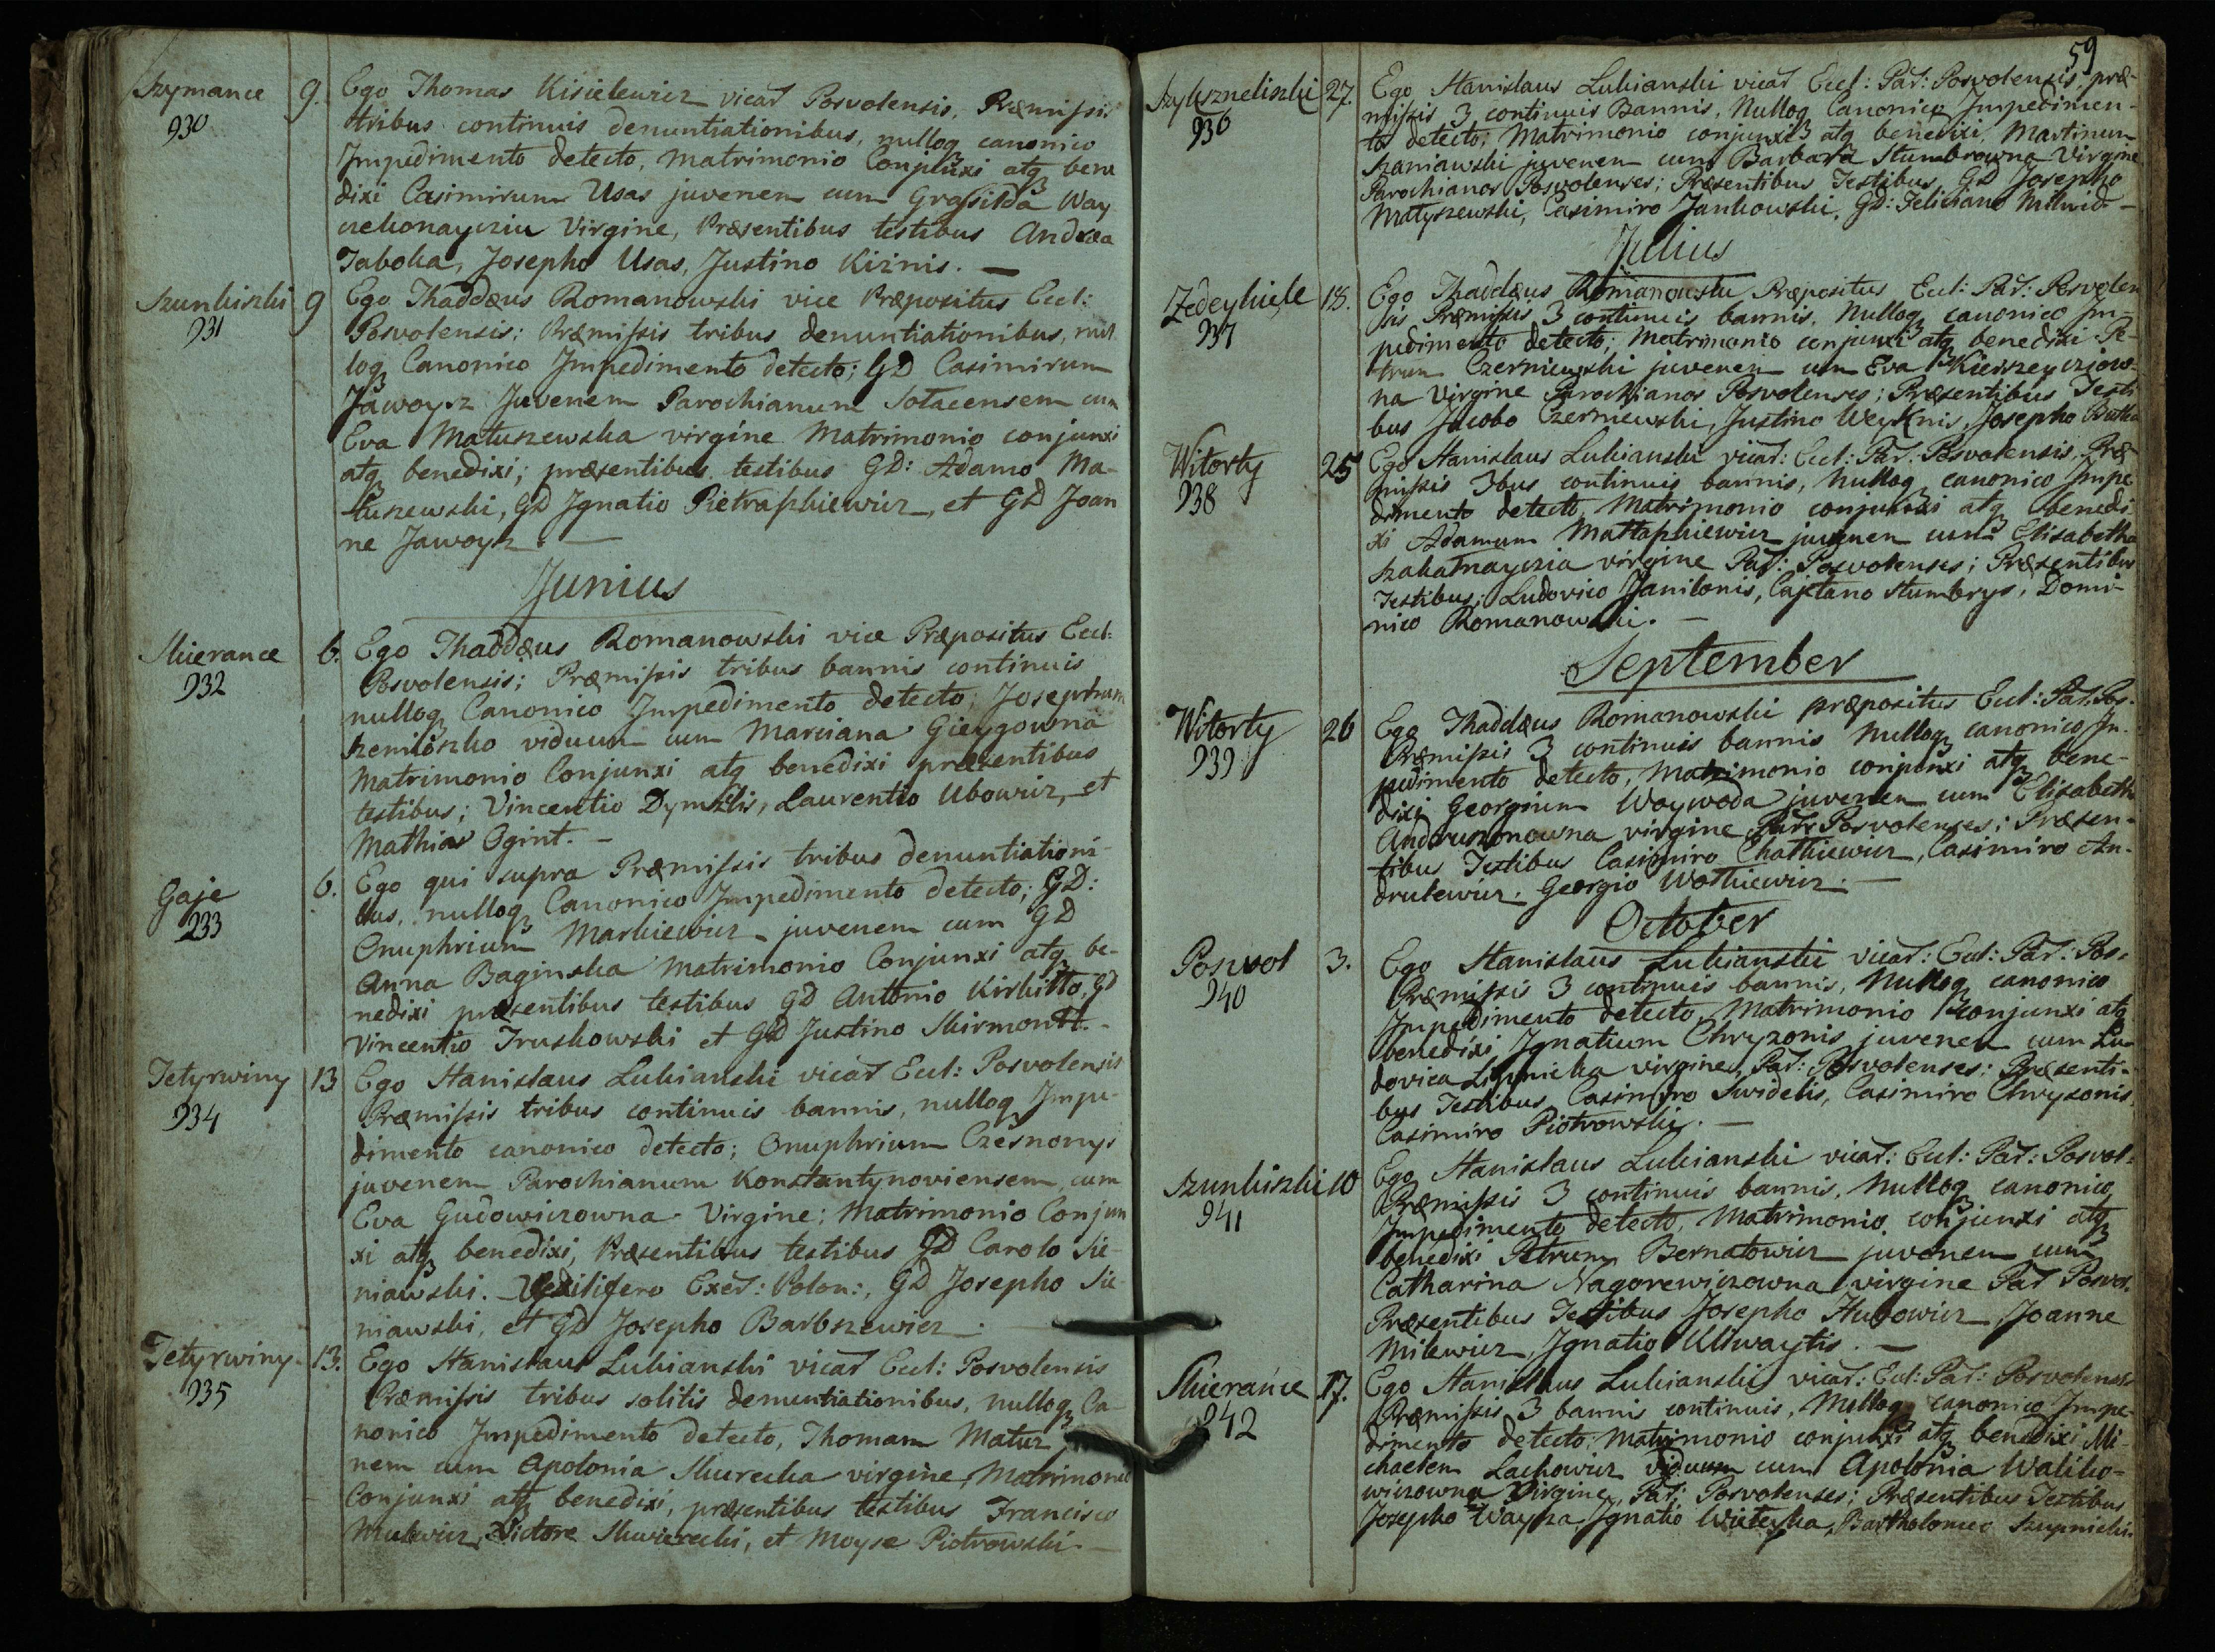 Szymance 9. Ego Thomas Kisielewicz vicar̃ Posvolensis, Præmissis
930 tribus continuis denuntiationibus, nulloq̃ canonico
Impedimento detecto, Matrimonio Conjunxi atq̃ bene
dixi Casimirum Usas juvenem cum Grassilda Way
ciekonayciu Virgine, Præsentibus testibus Andrea
Taboka, Josepho Usas, Justino Kiżnis. —
Szunkiszki 9 Ego Thaddæus Romanowski vice Præpositus Eccl:
931 Posvolensis; Præmissis tribus denuntiationibus, nul
loq̃ Canonico Impedimento detecto; GD Casimirum
Jawoysz Juvenem Parochianum Sotacensem cum
Eva Matuszewska virgine Matrimonio conjunxi
atq̃ benedixi; præsentibus testibus GD: Adamo Ma-
tuszewski, GD Ignatio Pietraszkiewicz, et GD Joan
ne Jawoysz. —
Junius
Skierance 6. Ego Thaddæus Romanowski vice Præpositus Eccl:
932 Posvolensis; Præmissis tribus bannis continuis
nulloq̃ Canonico Impedimento detecto; Josephum
Szemioszko viduum cum Marciana Gieygowna
Matrimonio Conjunxi atq̃ benedixi præsentibus
testibus; Vincentio Dymszlis, Laurentio Ubowicz, et
Mathia Ogint. —
Gaje 6. Ego qui supra Præmissis tribus denuntiationi-
933 bus, nulloq̃ Canonico Impedimento detecto; GD:
Onuphrium Markiewicz juvenem cum GD
Anna Baginska Matrimonio Conjunxi atq̃ be-
nedixi præsentibus testibus GD Antonio Kirkitto, GD
Vincentio Truskowski et GD Justino Skirmontt. -
Tetyrwiny 13 Ego Stanislaus Lukianski vicar̃ Eccl: Posvolensis
934 Præmissis tribus continuis bannis, nulloq̃ Impe-
dimento canonico detecto; Onuphrium Czesnonys
juvenem Parochianum Konstantynoviensem cum
Eva Gudowiczowna Virgine; Matrimonio Conjun
xi atq̃ benedixi, Præsentibus testibus GD Carolo Sie-
niawski. Vexilifero Exer̃: Polon:, GD Josepho Sie-
niawski, et GD Josepho Barbszewicz.
Tetyrwiny 13. Ego Stanislaus Lukianski vicar̃ Eccl: Posvolensis
935 Præmissis tribus solitis denuntiationibus, nulloq̃ Ca-
nonico Impedimento detecto, Thomam Matuz
nem cum Apolonia Skurecka virgine, Matrimonio
Conjunxi atq̃ benedixi, præsentibus testibus Francisco
Mulewicz, Victore Skwierecki, et Moyse Piotrowski. —
59
Szykszneliszki 27. Ego Stanislaus Lukianski vicar̃ Eccl: Par̃: Posvolensis, præ-
936 missis 3 continuis Bannis, Nulloq̃ Canonico Impedimen-
to detecto; Matrimonio conjunxi atq̃ benedixi, Martinum
Szaniawski juvenem cum Barbara Stumbrowna Virgine
Parochianos Posvolenses; Præsentibus Testibus GD Josepho
Matyszewski, Casimiro Jankowski, GD: Feliciano Milwid —
Julius
Zedeykiele 18. Ego Thaddæus Romanowski Præpositus Eccl: Par̃: Posvolen
937 sis Præmissis 3 continuis bannis. Nulloq̃ canonico Im-
pedimento detecto; Matrimonio conjunxi atq̃ benedixi Pe-
trum Czerniewski juvenem cum Eva Kierszeycziow-
na Virgine Parochianos Posvolenses; Præsentibus Testi
bus Jacobo Czerniewski, Justino Weyknis, Josepho Butka
Witorty 25 Ego Stanislaus Lukianski vicar̃: Eccl: Par̃: Posvolensis, Præ
938 missis 3bus continuis bannis, Nulloq̃ canonico Impe
dimento detecto, Matrimonio conjunxi atq̃ benedi
xi Adamum Mattaszkiewicz juvenem cum Elisabetha
Szakatnayczia virgine Par̃: Posvolenses; Præsentibus
Testibus; Ludovico Janilonis, Cajetano Stumbrys, Domi-
nico Romanowski. —
September
Witorty 26 Ego Thaddæus Romanowski præpositus Eccl: Par̃: Pos.
939 Præmissis 3 continuis bannis Nulloq̃ canonico Im-
pedimento detecto, Matrimonio conjunxi atq̃ bene-
dixi Georgium Woywoda juvenem cum Elisabeth
Andruszonowna virgine Par̃: Posvolenses; Præsen-
tibus Testibus Casimiro Chatkiewicz, Casimiro An-
drulewicz. Georgio Wotkiewicz. —
October
Poswol 3. Ego Stanislaus Lukianski vicar̃: Eccl: Par̃: Pos.
940 Præmissis 3 continuis bannis, Nulloq̃ canonico
Impedimento detecto, Matrimonio conjunxi atq̃
benedixi Ignatium Chryzonis juvenem cum Lu-
dovica Lipnicka virgine, Par̃: Posvolenses; Præsenti-
bus Testibus Casimiro Swidelis, Casimiro Chryzonis,
Casimiro Piotrowski. —
Szunkiszki 10 Ego Stanislaus Lukianski vicar̃: Eccl: Par̃: Posvol:
941 Præmissis 3 continuis bannis, Nulloq̃ canonico
Impedimento detecto, Matrimonio conjunxi atq̃
benedixi Petrum Bernatowicz juvenem cum
Catharina Nagorewiczowna virgine Par̃ Posvol.
Præsentibus Testibus Josepho Hubowicz, Joanne
Milewicz, Ignatio Kliwaytis. —
Skierance 17. Ego Stanislaus Lukianski vicar̃: Eccl: Par̃: Posvolensis
942 Præmissis 3 bannis continuis, Nulloq̃ canonico Impe-
dimento detecto; Matrimonio conjunxi atq̃ benedixi Mi-
chaelem Lachowicz viduum cum Apolonia Waliko-
wiczowna Virgine, Par̃: Posvolenses; Præsentibus Testibus
Josepho Wayna, Ignatio Wieteska, Bartholomeo Szupnicki.